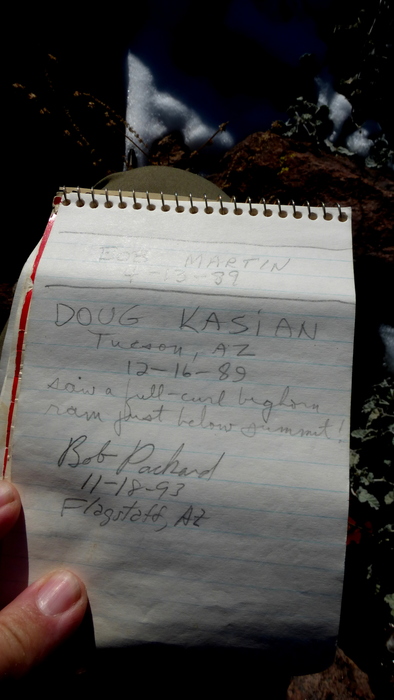 BOB MARTIN
4-13-89
DOUG KASiAN
Tucson, AZ
12-16-89
saw a full-curl bighorn
ram just below summit!
Bob Packard
11-18-93
Flagstaff, AZ